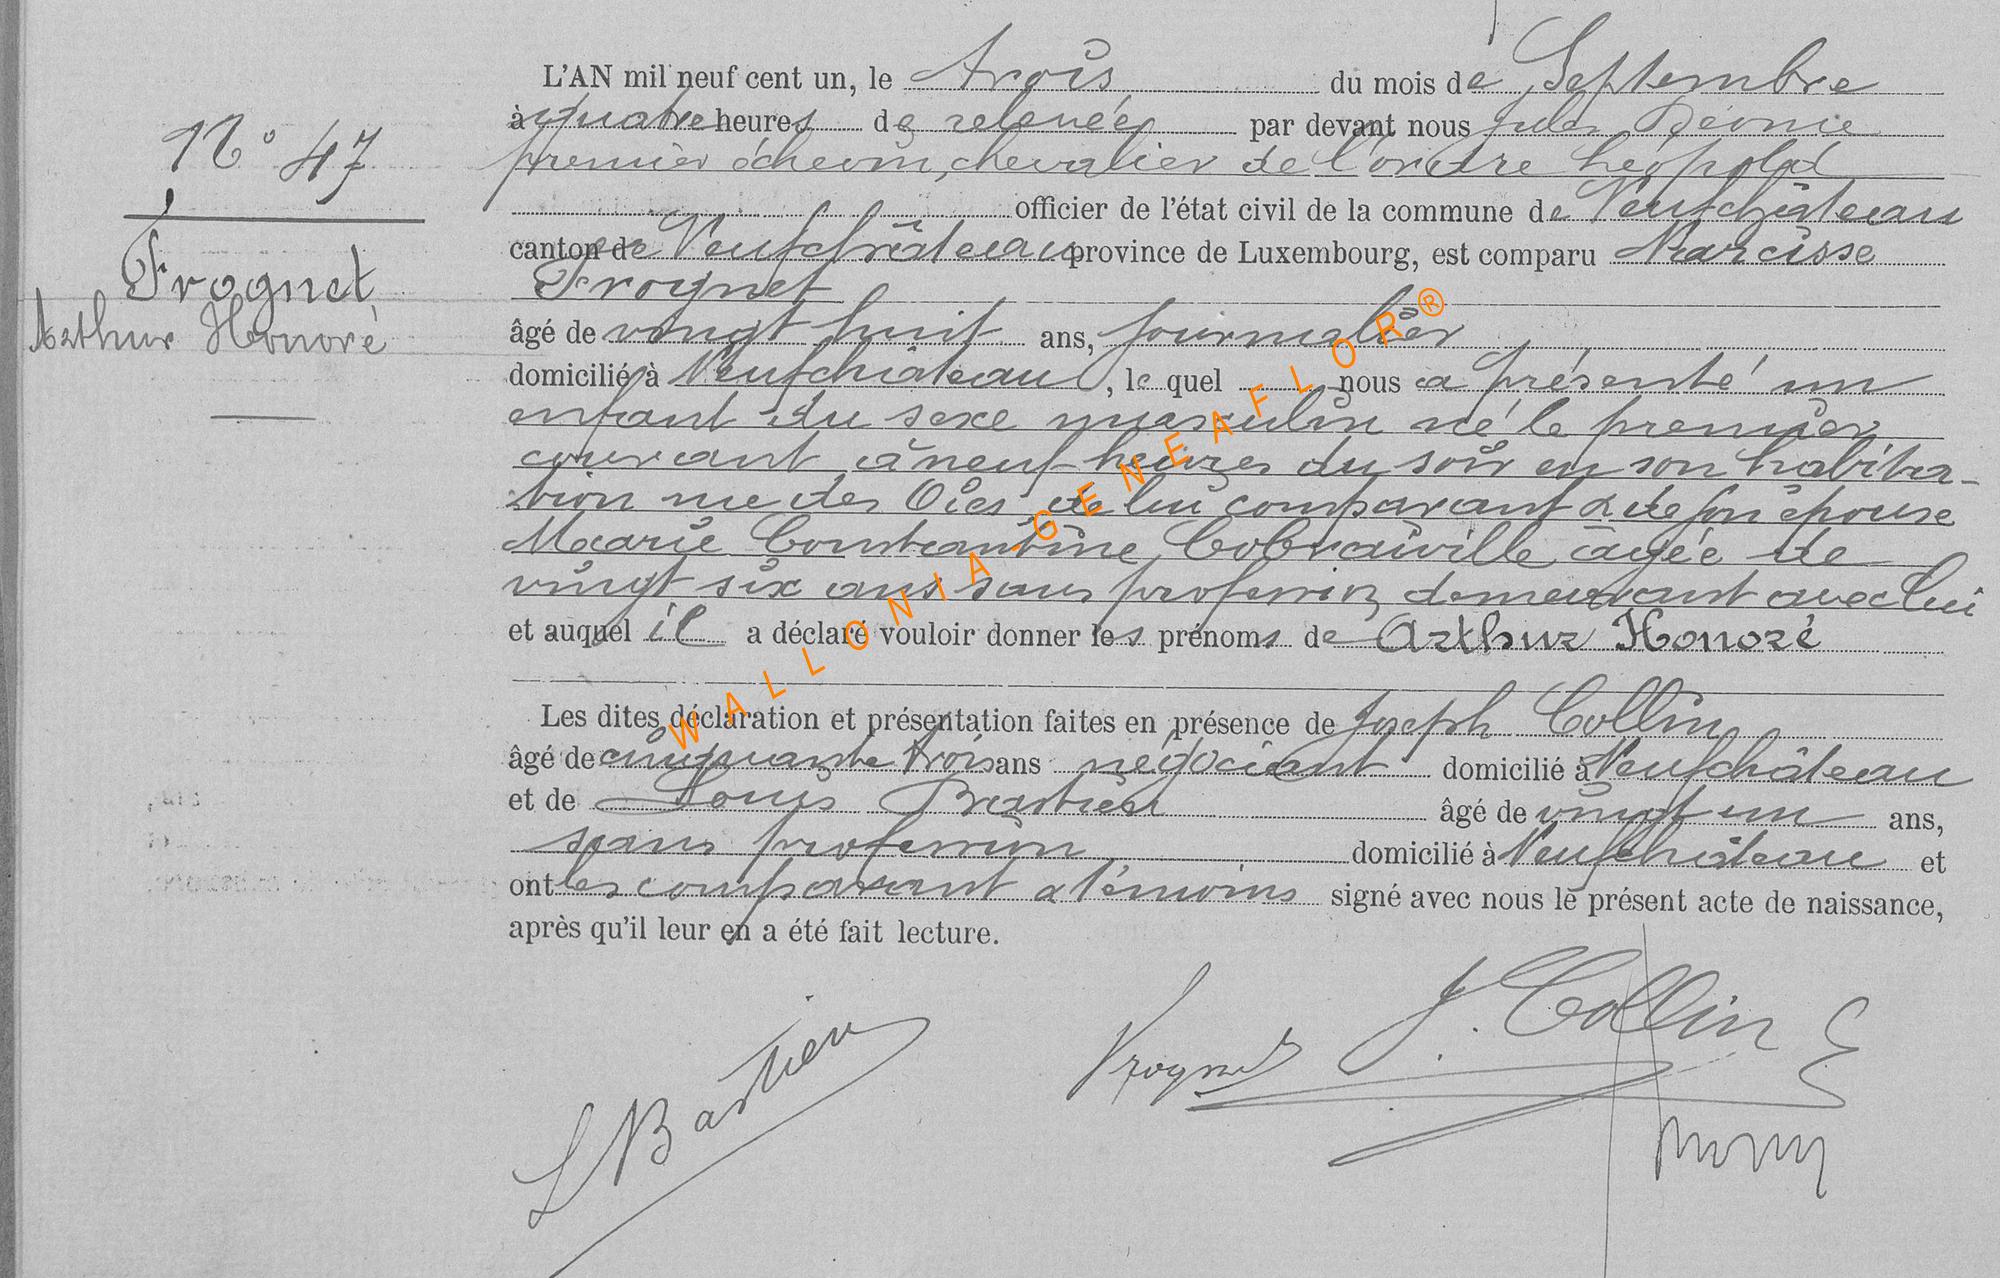 N° 47
Frognet
Arthur Honoré
L'AN mil neuf cent un, le trois du mois de Septembre
à quatre heures de relevée par devant nous Jules
premier échevin, chevalier de l'ordre Léopold
officier de l'état civil de la commune de Neufchâteau
canton de Neufchâteau province de Luxembourg, est comparu Narcisse
Frognet
âgé de vingt huit ans, journalier
domicilié à Neufchâteau, le quel nous a présenté un
enfant du sexe masculin né le premier
courant à neuf heures du soir en son habita-
tion rue des Oies de lui comparant & de son épouse
Marie Constantine Cobraiville âgée de
vingt six ans sans profession demeurant avec lui
et auquel il a déclaré vouloir donner les prénoms de Arthur Honoré
Les dites déclaration et présentation faites en présence de Joseph Collin
âgé de cinquante trois ans négociant domicilié à Neufchâteau
et de Louis Bastien âgé de vingt un ans,
sans profession domicilié à Neufchâteau et
ont les comparant & témoins signé avec nous le présent acte de naissance,
après qu'il leur en a été fait lecture.
J. Collin
Frognet
L Bastien
WALLONIA-GENEAFLOR®